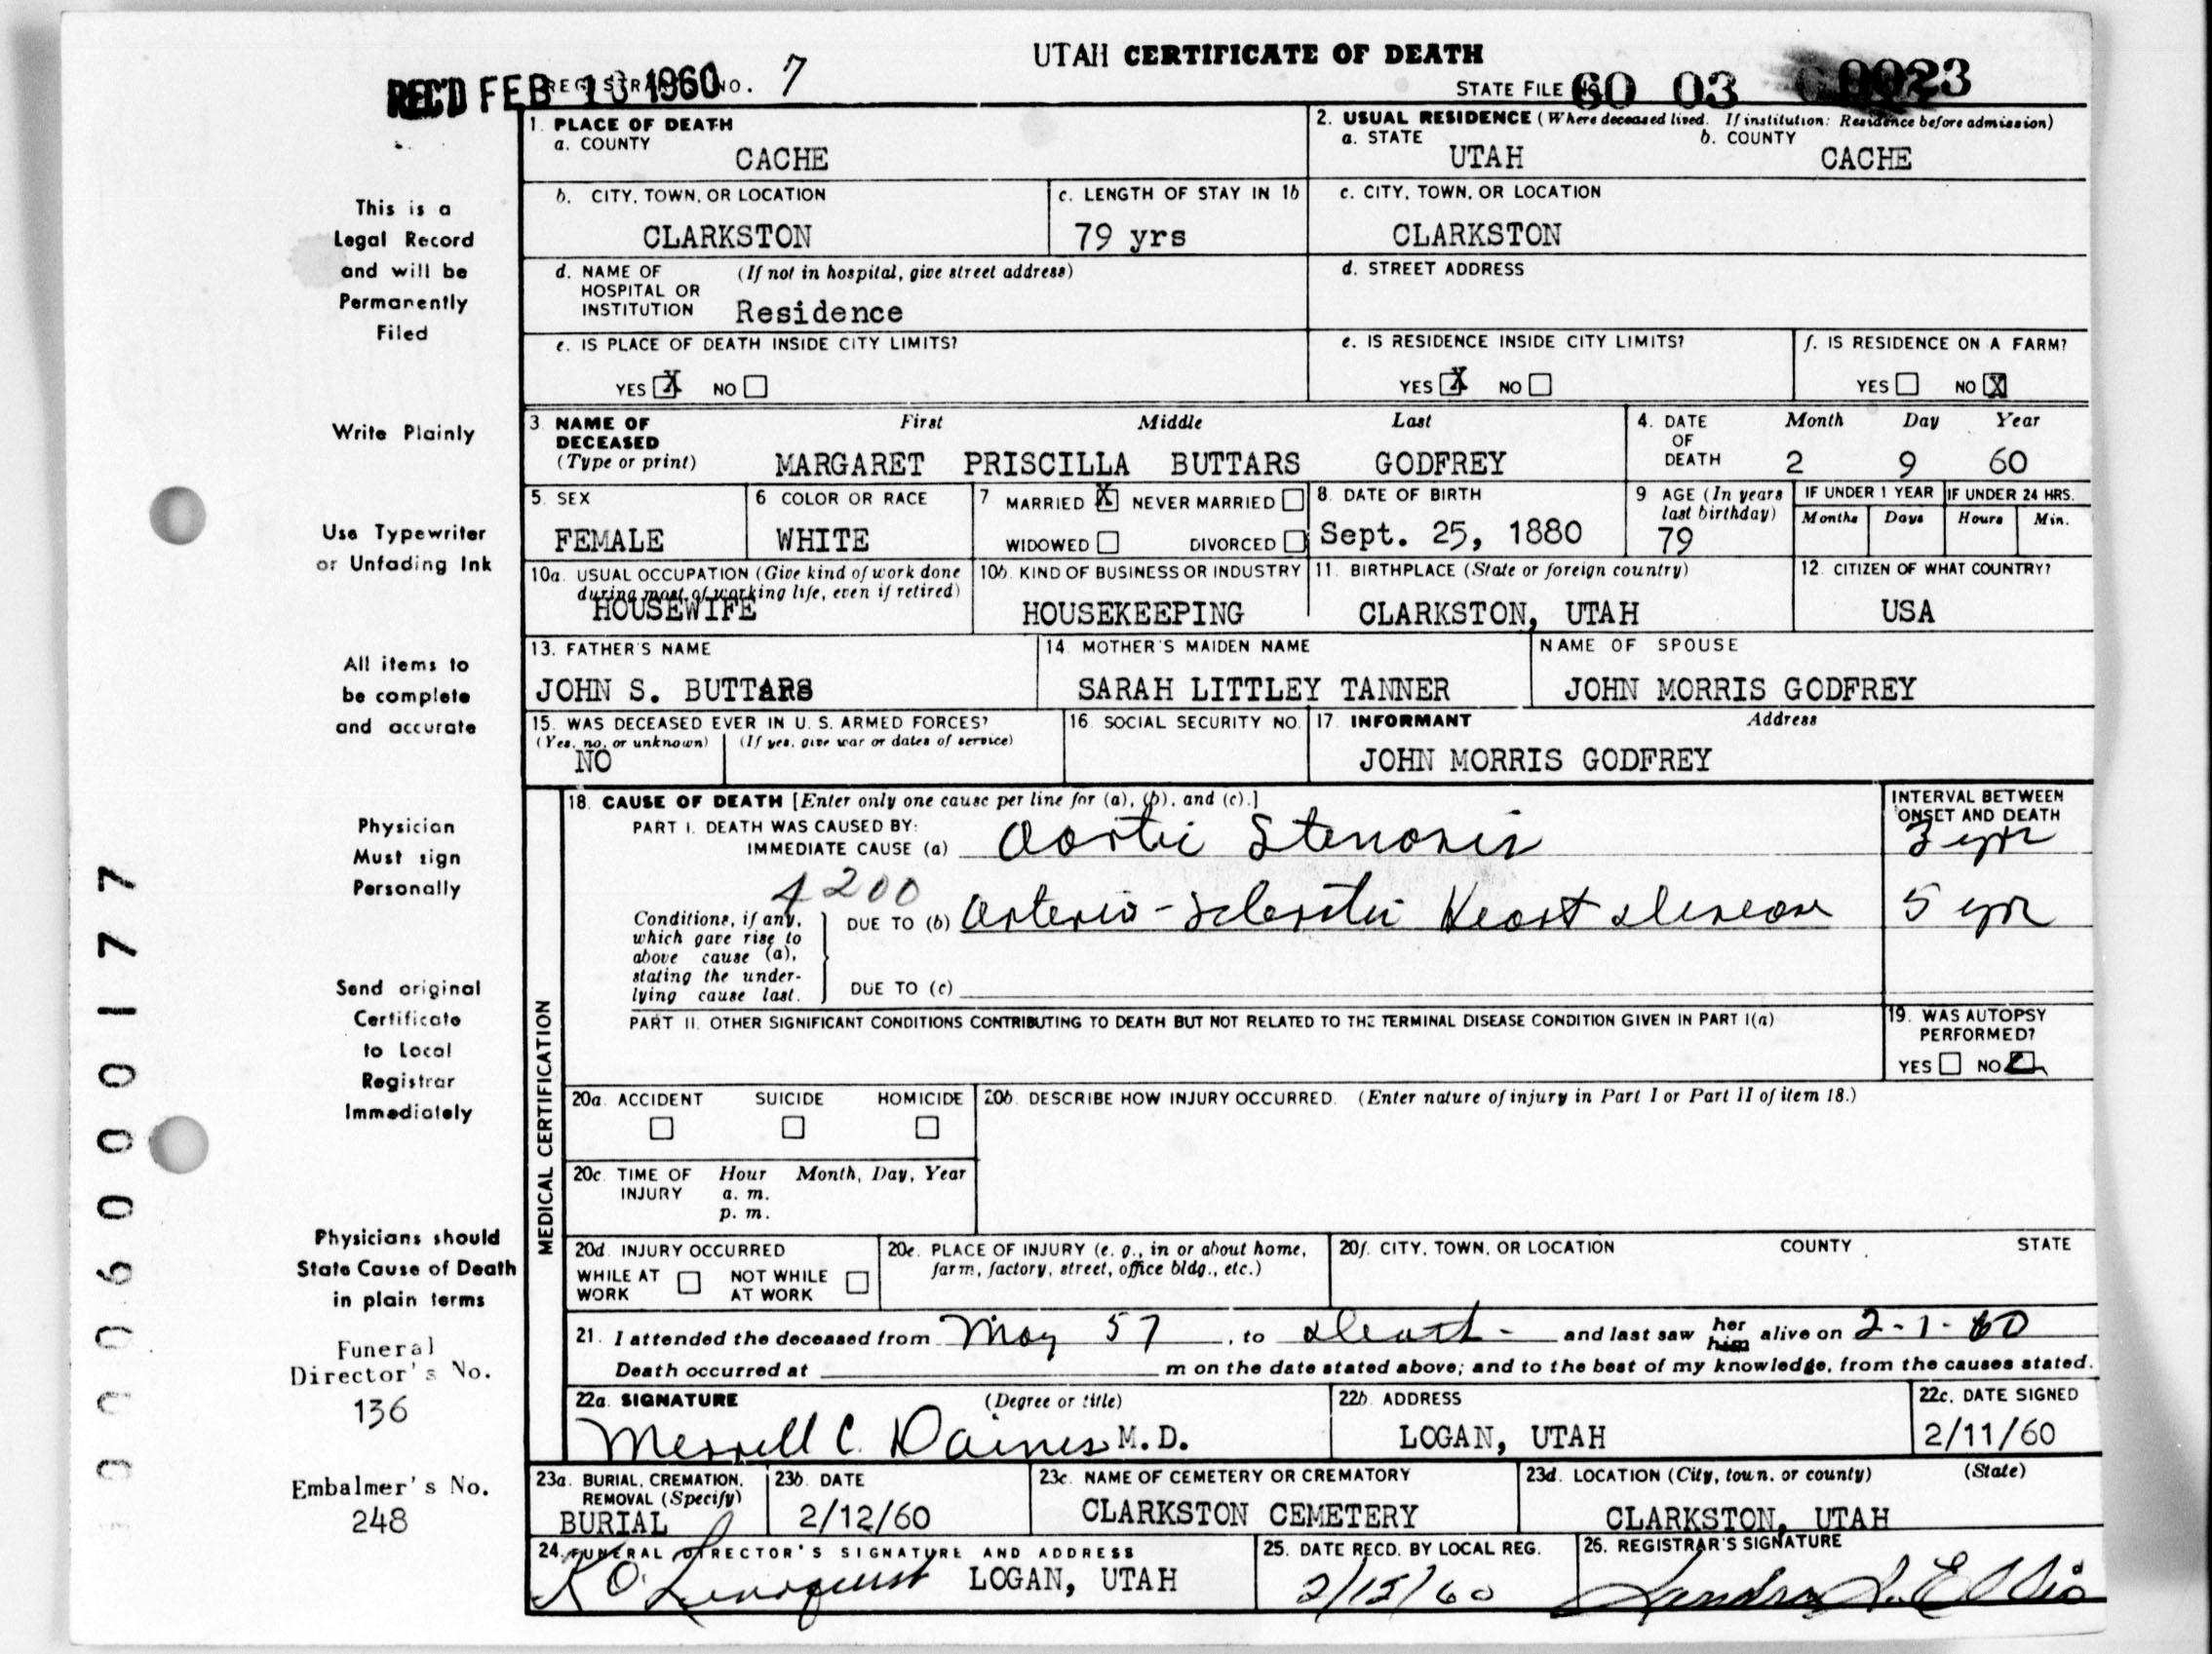 UTAH CERTIFICATE OF DEATH
REC'D FEB 1960 REGISTRAR'S NO. 7
STATE FILE 60 03 0023
1. PLACE OF DEATH
a. COUNTY
CACHE
2. USUAL RESIDENCE (Where deceased lived. If institution: Residence before admission)
a. STATE b. COUNTY
UTAH CACHE
b. CITY, TOWN, OR LOCATION
CLARKSTON
c. LENGTH OF STAY IN 1b
79 yrs
c. CITY, TOWN, OR LOCATION
CLARKSTON
d. NAME OF HOSPITAL OR INSTITUTION (If not in hospital, give street address)
Residence
d. STREET ADDRESS
e. IS PLACE OF DEATH INSIDE CITY LIMITS?
YES X NO
e. IS RESIDENCE INSIDE CITY LIMITS?
YES X NO
f. IS RESIDENCE ON A FARM?
YES NO X
3. NAME OF DECEASED (Type or print) First Middle Last
MARGARET PRISCILLA BUTTARS GODFREY
4. DATE OF DEATH Month Day Year
2 9 60
5. SEX
FEMALE
6 COLOR OR RACE
WHITE
7 MARRIED X NEVER MARRIED
WIDOWED DIVORCED
8. DATE OF BIRTH
Sept. 25, 1880
9 AGE (In years last birthday)
79
IF UNDER 1 YEAR IF UNDER 24 HRS.
Months Days Hours Min.
10a. USUAL OCCUPATION (Give kind of work done during most of working life, even if retired)
HOUSEWIFE
10b. KIND OF BUSINESS OR INDUSTRY
HOUSEKEEPING
11. BIRTHPLACE (State or foreign country)
CLARKSTON, UTAH
12. CITIZEN OF WHAT COUNTRY?
USA
13. FATHER'S NAME
JOHN S. BUTTARS
14. MOTHER'S MAIDEN NAME
SARAH LITTLEY TANNER
NAME OF SPOUSE
JOHN MORRIS GODFREY
15. WAS DECEASED EVER IN U. S. ARMED FORCES?
(Yes, no, or unknown) (If yes, give war or dates of service)
NO
16. SOCIAL SECURITY NO.
17. INFORMANT Address
JOHN MORRIS GODFREY
MEDICAL CERTIFICATION
18. CAUSE OF DEATH [Enter only one cause per line for (a), (b), and (c).]
PART I. DEATH WAS CAUSED BY:
IMMEDIATE CAUSE (a) Aortic Stenosis
INTERVAL BETWEEN ONSET AND DEATH
3 yr
4200
Conditions, if any, which gave rise to above cause (a), stating the underlying cause last.
DUE TO (b) Arterio-Sclerotic Heart disease 5 yr
DUE TO (c)
PART II. OTHER SIGNIFICANT CONDITIONS CONTRIBUTING TO DEATH BUT NOT RELATED TO THE TERMINAL DISEASE CONDITION GIVEN IN PART I(a)
19. WAS AUTOPSY PERFORMED?
YES NO
20a. ACCIDENT SUICIDE HOMICIDE
20b. DESCRIBE HOW INJURY OCCURRED. (Enter nature of injury in Part I or Part II of item 18.)
20c. TIME OF INJURY Hour Month, Day, Year
a. m.
p. m.
20d. INJURY OCCURRED
WHILE AT WORK NOT WHILE AT WORK
20e. PLACE OF INJURY (e. g., in or about home, farm, factory, street, office bldg., etc.)
20f. CITY, TOWN, OR LOCATION COUNTY STATE
21. I attended the deceased from May 57, to death - and last saw her him alive on 2-1-60
Death occurred at m on the date stated above; and to the best of my knowledge, from the causes stated.
22a. SIGNATURE (Degree or title)
Merrill C. Daines M.D.
22b. ADDRESS
LOGAN, UTAH
22c. DATE SIGNED
2/11/60
23a. BURIAL, CREMATION, REMOVAL (Specify)
BURIAL
23b. DATE
2/12/60
23c. NAME OF CEMETERY OR CREMATORY
CLARKSTON CEMETERY
23d. LOCATION (City, town, or county) (State)
CLARKSTON, UTAH
24. FUNERAL DIRECTOR'S SIGNATURE AND ADDRESS
LOGAN, UTAH
25. DATE RECD. BY LOCAL REG.
2/15/60
26. REGISTRAR'S SIGNATURE
This is a
Legal Record
and will be
Permanently
Filed
Write Plainly
Use Typewriter
or Unfading Ink
All items to
be complete
and accurate
Physician
Must sign
Personally
Send original
Certificate
to Local
Registrar
Immediately
Physicians should
State Cause of Death
in plain terms
Funeral
Director's No.
136
Embalmer's No.
248